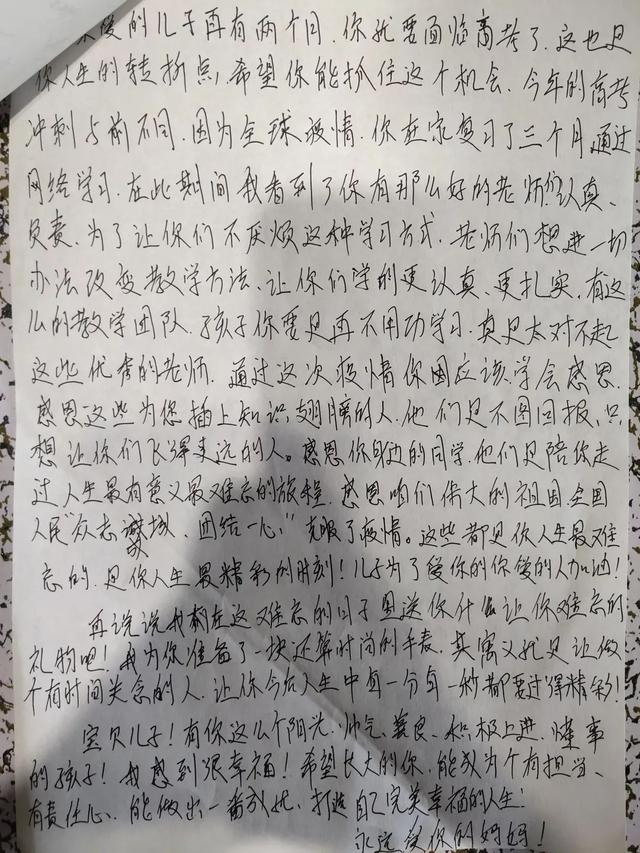 爱的儿子再有两个月，你就要面临高考了，这也是
你人生的转折点，希望你能抓住这个机会、今年的高考
冲刺与前不同，因为全球疫情，你在家复习了三个月，通过
网络学习，在此期间我看到了你有那么好的老师们认真、
负责，为了让你们不厌烦这种学习方式，老师们想进一切
办法改变教学方法，让你们学的更认真、更扎实，有这
么的教学团队，孩子你要是再不用功学习，真是太对不起
这些优秀的老师，通过这次疫情你因应该学会感恩，
感恩这些为您插上知识翅膀的人，他们是不图回报，只
想让你们飞得更远的人。感恩你身边的同学，他们是陪你走
过人生最有意义最难忘的旅程，感恩咱们伟大的祖国，全国
人民"众志成城、团结一心"克服了疫情。这些都是你人生最难
忘的，是你人生最精彩的时刻！儿子为了爱你的你爱的人加油！
再说说我们在这难忘的日子里送你什么让你难忘的
礼物吧！我为你准备了一块还算时尚的手表，其寓义就是让做
个有时间关念的人，让你今后人生中每一分每一秒都要过得精彩！
宝贝儿子！有你这么个阳光、帅气、善良、积极上进、懂事
的孩子！我感到很幸福！希望长大的你，能成为个有担当、
有责任心、能做出一番成就，打造自己完美幸福的人生！
永远爱你的妈妈！